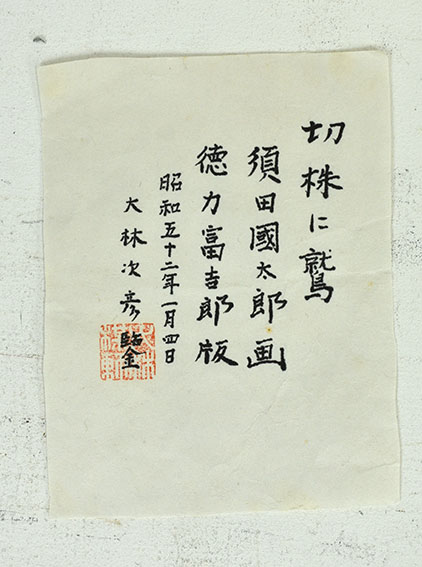 切株に鷲
須田國太郎画
徳力富吉郎版
昭和五十二年一月四日
大林次彦